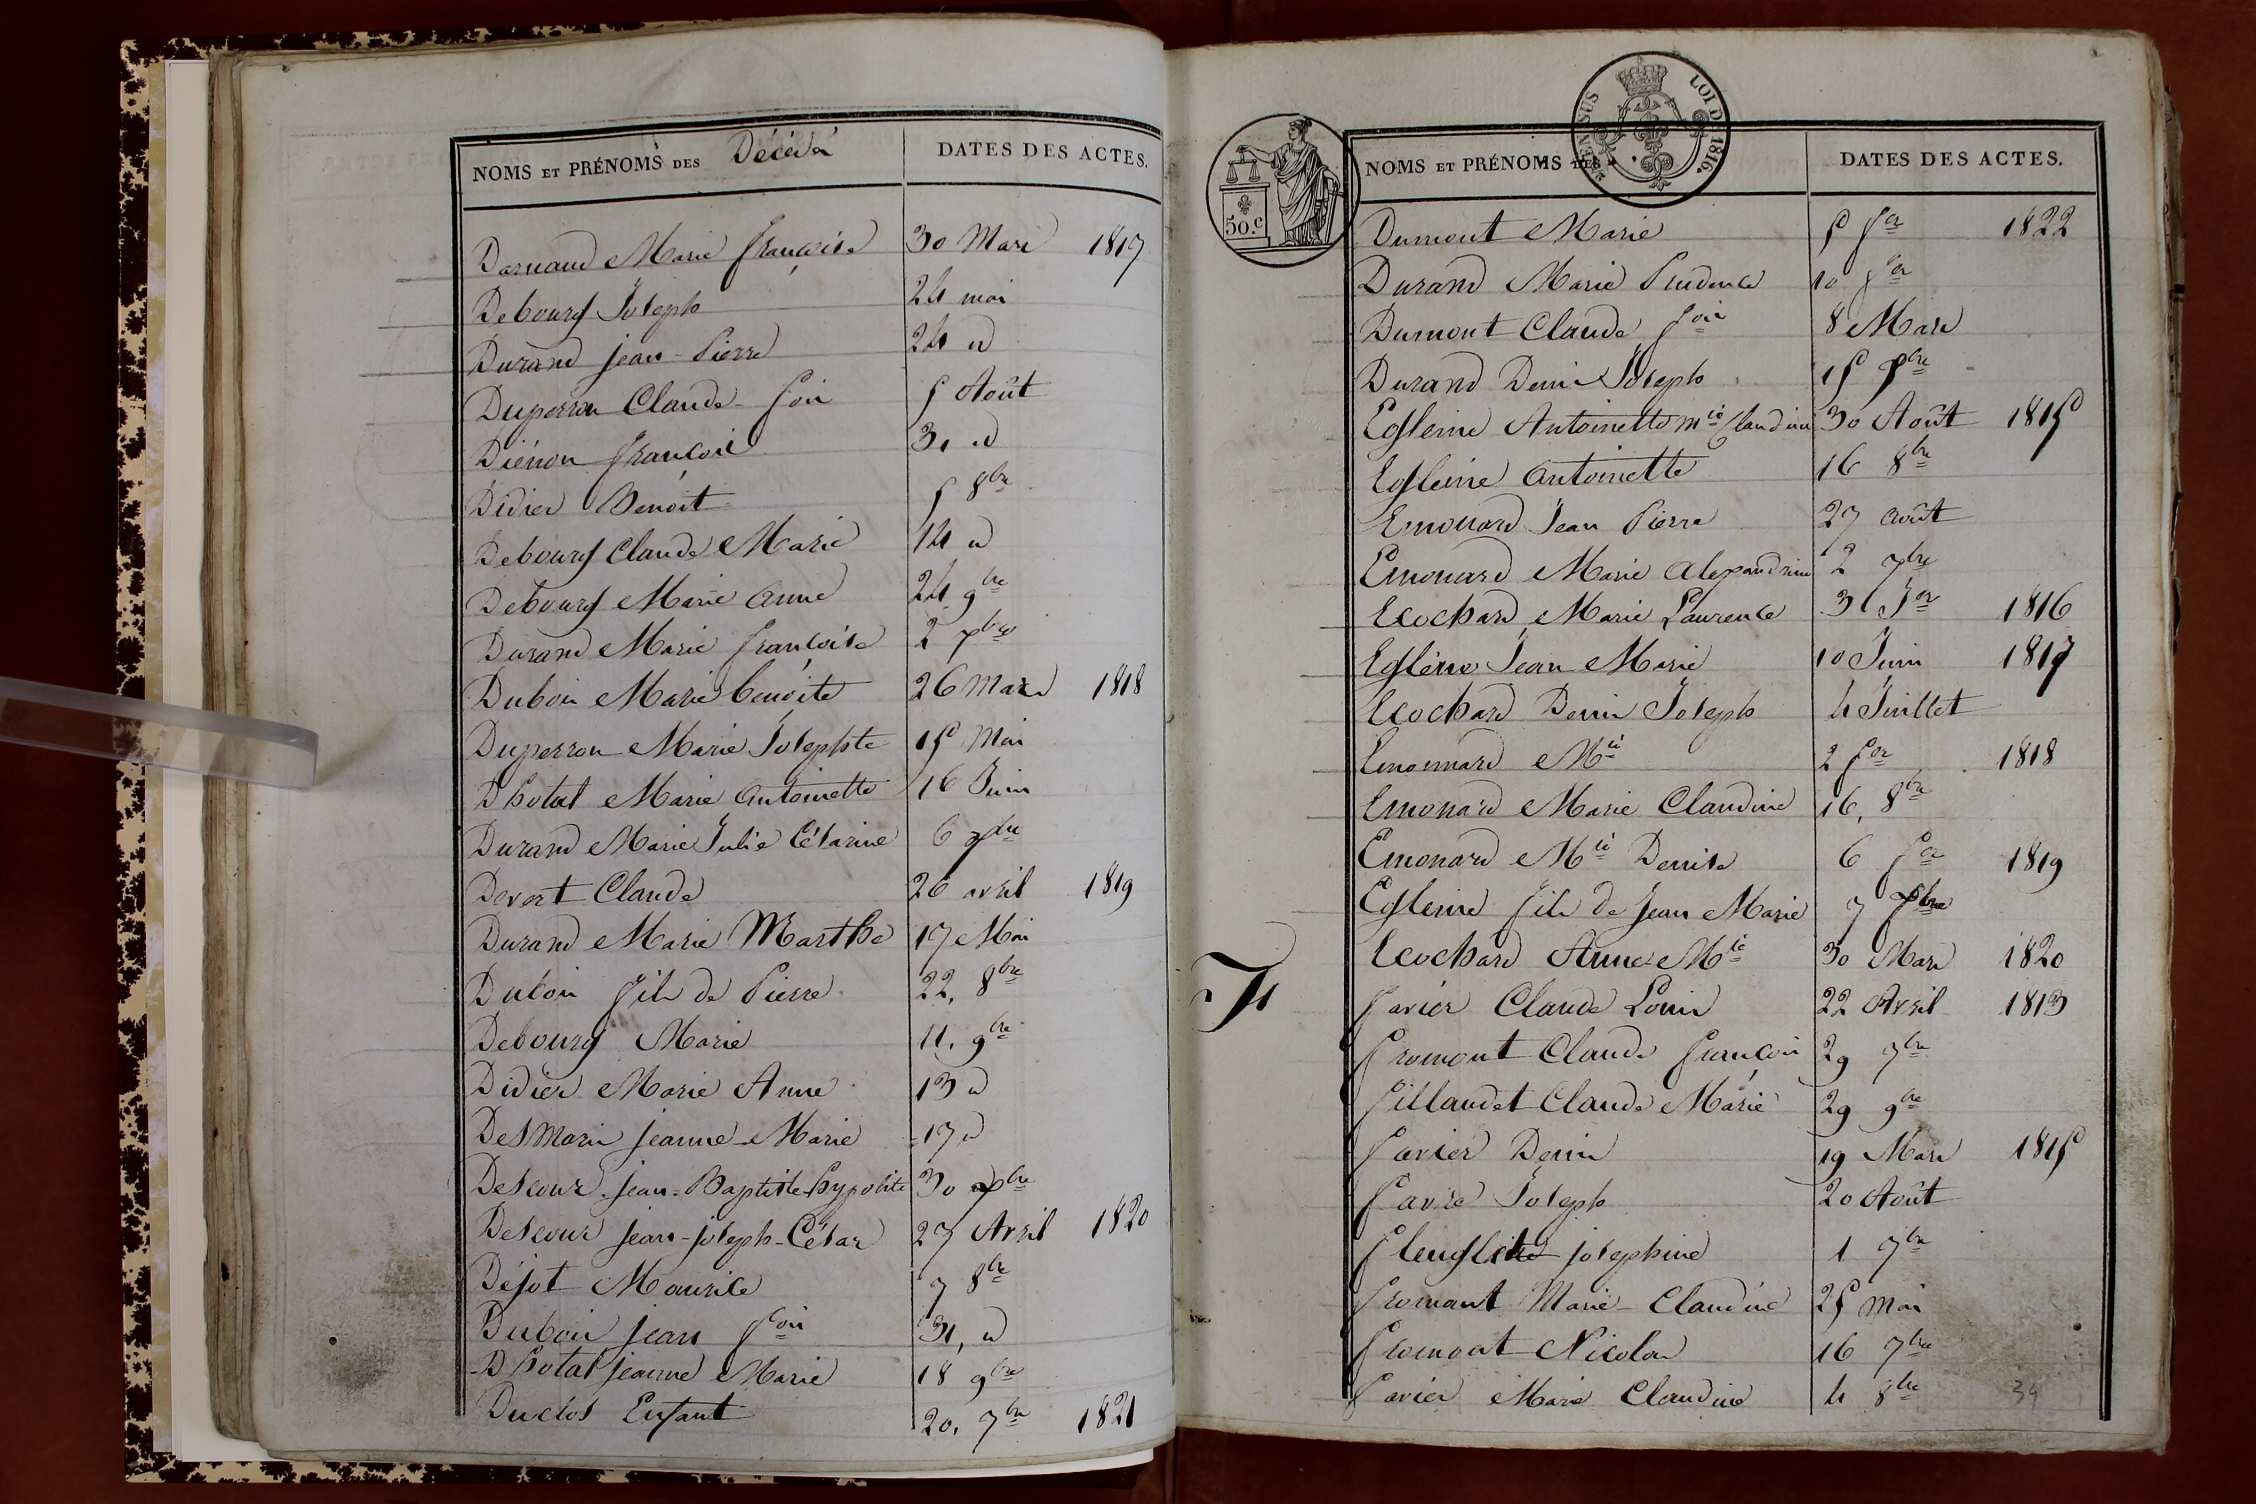 NOMS ET PRÉNOMS DES Décédés DATES DES ACTES.
Darnaud Marie françoise 30 Mars 1817
Debourg Joseph 24 mai
Durand jean-Pierre 24 d
Duperron Claude foi 5 Août
Diénon françois 31 d
Didier Benoit 5 8bre
Debourg Claude Marie 14 d
Debourg Marie anne 24 9bre
Durand Marie françoise 2 Xbre
Dubois Marie benoite 26 Mars 1818
Duperron Marie Josephte 15 Mai
Dhotal Marie antoinette 16 Juin
Durand Marie Julie Césarine 6 Xbre
Devert Claude 26 avril 1819
Durand Marie Marthe 17 Mai
Dubois fils de Pierre 22. 8bre
Debourg Marie 11. 9bre
Didier Marie Anne 13 d
Desmaris jeanne-Marie 17 d
Descour jean-Baptiste-hypolite 30 Xbre
Descour jean-joseph-César 27 Avril 1820
Déjot Maurice 7 8bre
Dubois jean foi 31, d
Dhotal jeanne Marie 18 9bre
Duclos Enfant 20. 7bre 1821
50.C
LOI DE 1816.
NOMS ET PRÉNOMS DES DATES DES ACTES.
Dumont Marie 5 fer 1822
Durand Marie Prudence 10 fer
Dumont Claude foi 8 Mars
Durand Denis Joseph 15 Xbre
Egleine Antoinette mie Claudine 30 Août 1815
Egleine antoinette 16 8bre
Emonard Jean Pierre 27 août
Emonard Marie Alexandrine 2 7bre
Ecochard Marie Laurence 31 Jer 1816
Egléne Jean Marie 10 Juin 1817
Ecochard Denis Joseph 4 Juillet
Emonnard Mie 2 fer 1818
Emonard Marie Claudine 16, 8bre
Emonard Mie Denise 6 fer 1819
Egleine fils de Jean Marie 7 Xbre
Ecochard Anne Mie 30 Mars 1820
F
favier Claude Louis 22 Avril 1813
fromont Claude françois 29 7bre
fillaudet Claude Marie 29 9bre
favier Denis 19 Mars 1815
favre Joseph 20 Août
josephine 1 7bre
fromant Marie-Claudine 25 mai
fromont Nicolas 16 7bre
favier Marie Claudine 4 8bre
39